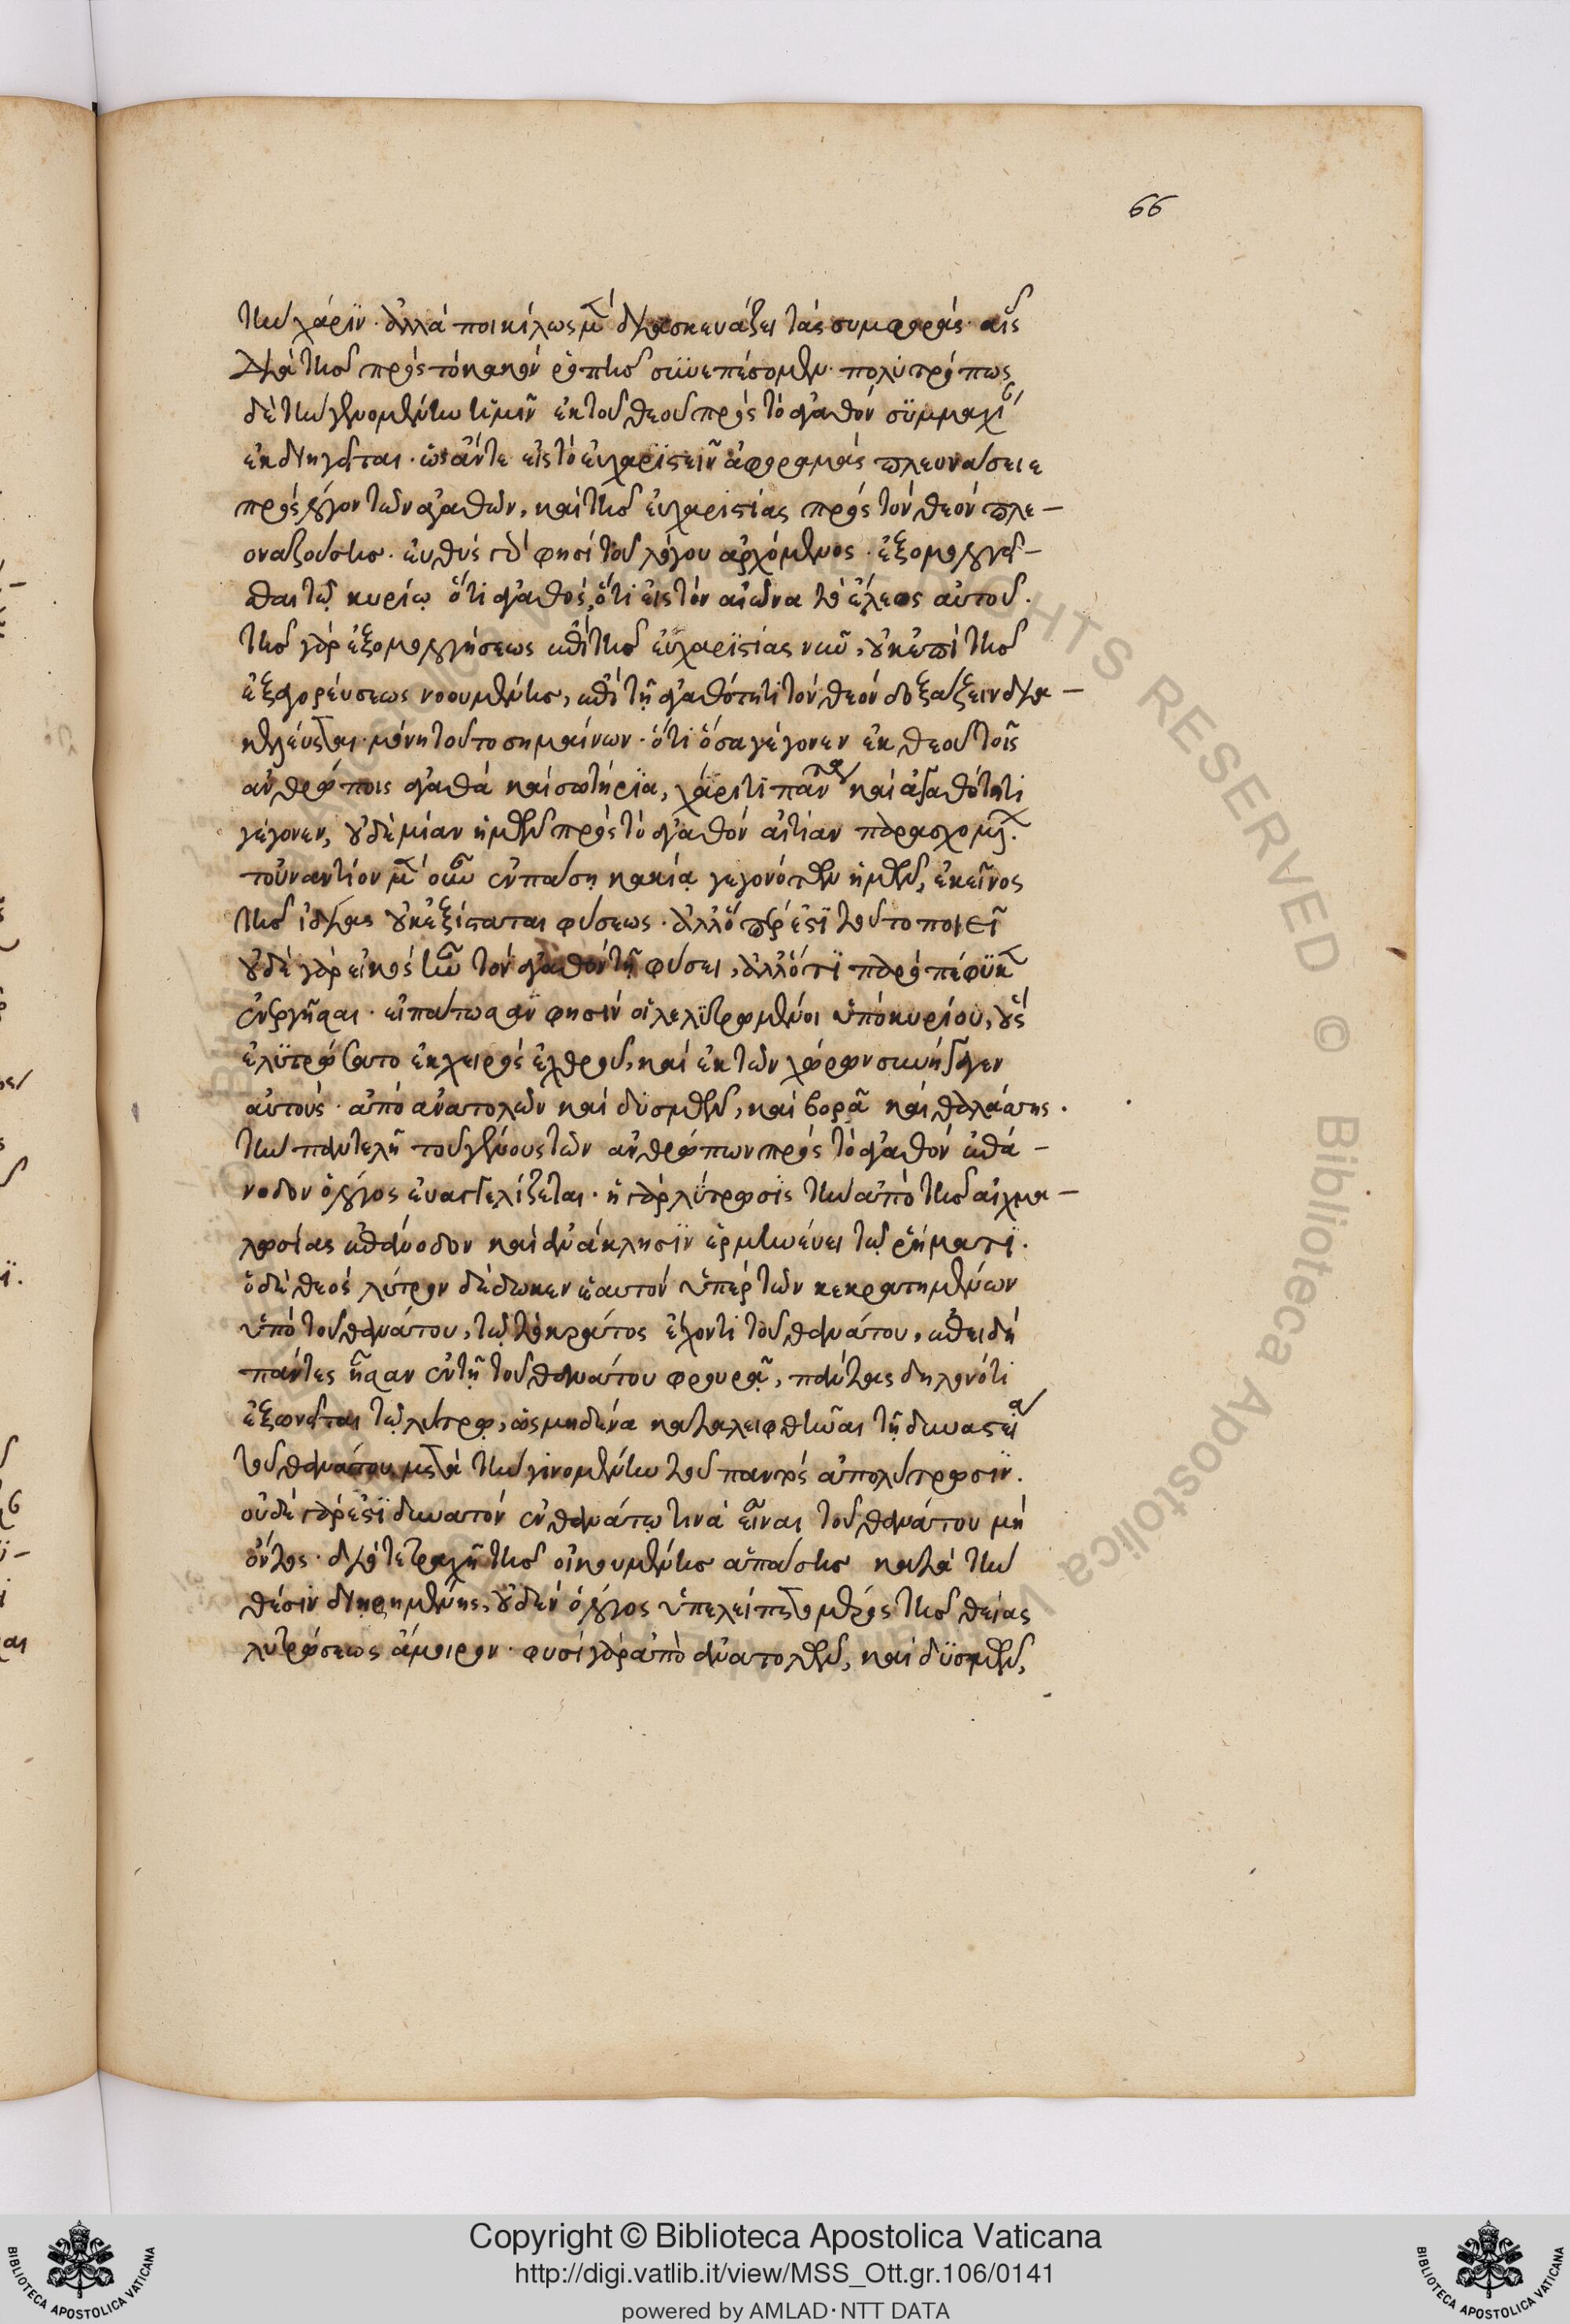 66
τὴν χάριν. ἀλλὰ ποικίλως μὲν διασκευάζει τὰς συμφορὰς. αἷς
διὰ τῆς πρὸς τὸ κακὸν ῥοπῆς συνεπέσομεν. πολυτρόπως
δὲ τὴν γενομένην ἡμῖν ἐκ τοῦ θεοῦ πρὸς τὸ ἀγαθὸν συμμαχί
ἐκδιηγεῖται. ὡς ἄν τε εἰς τὸ εὐχαριστεῖν ἀφορμὰς πλεονάσειε
πρὸς λόγον τῶν ἀγαθῶν, καὶ τῆς εὐχαριστίας πρὸς τὸν θεὸν πλε-
οναζούσης. εὐθὺς γάρ φησι τοῦ λόγου ἀρχόμενος. ἐξομολογεῖ-
σθαι τῷ κυρίῳ ὅτι ἀγαθός, ὅτι εἰς τὸν αἰῶνα τὸ ἔλεος αὐτοῦ.
τῆς γὰρ ἐξομολογήσεως ἐπὶ τῆς εὐχαριστίας νῦν, οὐκ ἐπὶ τῆς
ἐξαγορεύσεως νοουμένης, ἐπὶ τῇ ἀγαθότητι τὸν θεὸν δοξάζειν δια-
κελεύεται. μόνη τοῦτο σημαίνων. ὅτι ὅσα γέγονεν ἐκ θεοῦ τοῖς
ἀνθρώποις ἀγαθὰ καὶ σωτήρια, χάριτι πάντα καὶ ἀγαθότητι
γέγονεν, οὐδεμίαν ἡμῶν πρὸς τὸ ἀγαθὸν αἰτίαν παρασχομέν.
τοὐναντίον μὲν οὖν ἐν πάσῃ κακίᾳ γεγονότων ἡμῶν, ἐκεῖνος
τῆς ἰδίας οὐκ ἐξίσταται φύσεως. ἀλλ' ὅπερ ἐστὶ τοῦτο ποιεῖ
οὐδὲ γὰρ εἰκὸς ἦν τὸν ἀγαθὸν τῇ φύσει, ἄλλό τι παρὸ πέφυκεν
ἐνεργῆσαι. εἰπάτωσαν φησὶν οἱ λελυτρωμένοι ὑπὸ κυρίου, οὓς
ἐλυτρώσατο ἐκ χειρὸς ἐχθροῦ, καὶ ἐκ τῶν χωρῶν συνήγαγεν
αὐτούς. ἀπὸ ἀνατολῶν καὶ δυσμῶν, καὶ βορᾶ καὶ θαλάσσης.
τὴν παντελῆ τοῦ γένους τῶν ἀνθρώπων πρὸς τὸ ἀγαθὸν ἐπά-
νοδον ὁ λόγος εὐαγγελίζεται. ἡ γὰρ λύτρωσις τὴν ἀπὸ τῆς αἰχμα-
λωσίας ἐπάνοδον καὶ ἀνάκλησιν ἑρμηνεύει τῷ ῥήματι.
ὁ δὲ θεὸς λύτρον δέδωκεν ἑαυτὸν ὑπὲρ τῶν κεκρατημένων
ὑπὸ τοῦ θανάτου, τῷ τὸ κράτος ἔχοντι τοῦ θανάτου, ἐπειδὴ
πάντες ἦσαν ἐν τῇ τοῦ θανάτου φρουρᾷ, πάντας δηλονότι
ἐξωνεῖται τῷ λύτρῳ, ὡς μηδένα καταλειφθῆναι τῇ δυναστείᾳ
τοῦ θανάτου μετὰ τὴν γινομένην τοῦ παντὸς ἀπολύτρωσιν.
οὐδὲ γάρ ἐστι δυνατὸν ἐν θανάτῳ τινὰ εἶναι τοῦ θανάτου μὴ
ὄντος. διὸ τετραχῇ τῆς οἰκουμένης ἁπάσης κατὰ τὴν
θέσιν διῃρημένης, οὐδὲν ὁ λόγος ὑπελείπετο μέρος τῆς θείας
λυτρώσεως ἄμοιρον. φησὶ γὰρ ἀπὸ ἀνατολῶν, καὶ δυσμῶν,
Copyright © Biblioteca Apostolica Vaticana
http://digi.vatlib.it/view/MSS_Ott.gr.106/0141
powered by AMLAD·NTT DATA
BIBLIOTECA APOSTOLICA VATICANA
BIBLIOTECA APOSTOLICA VATICANA